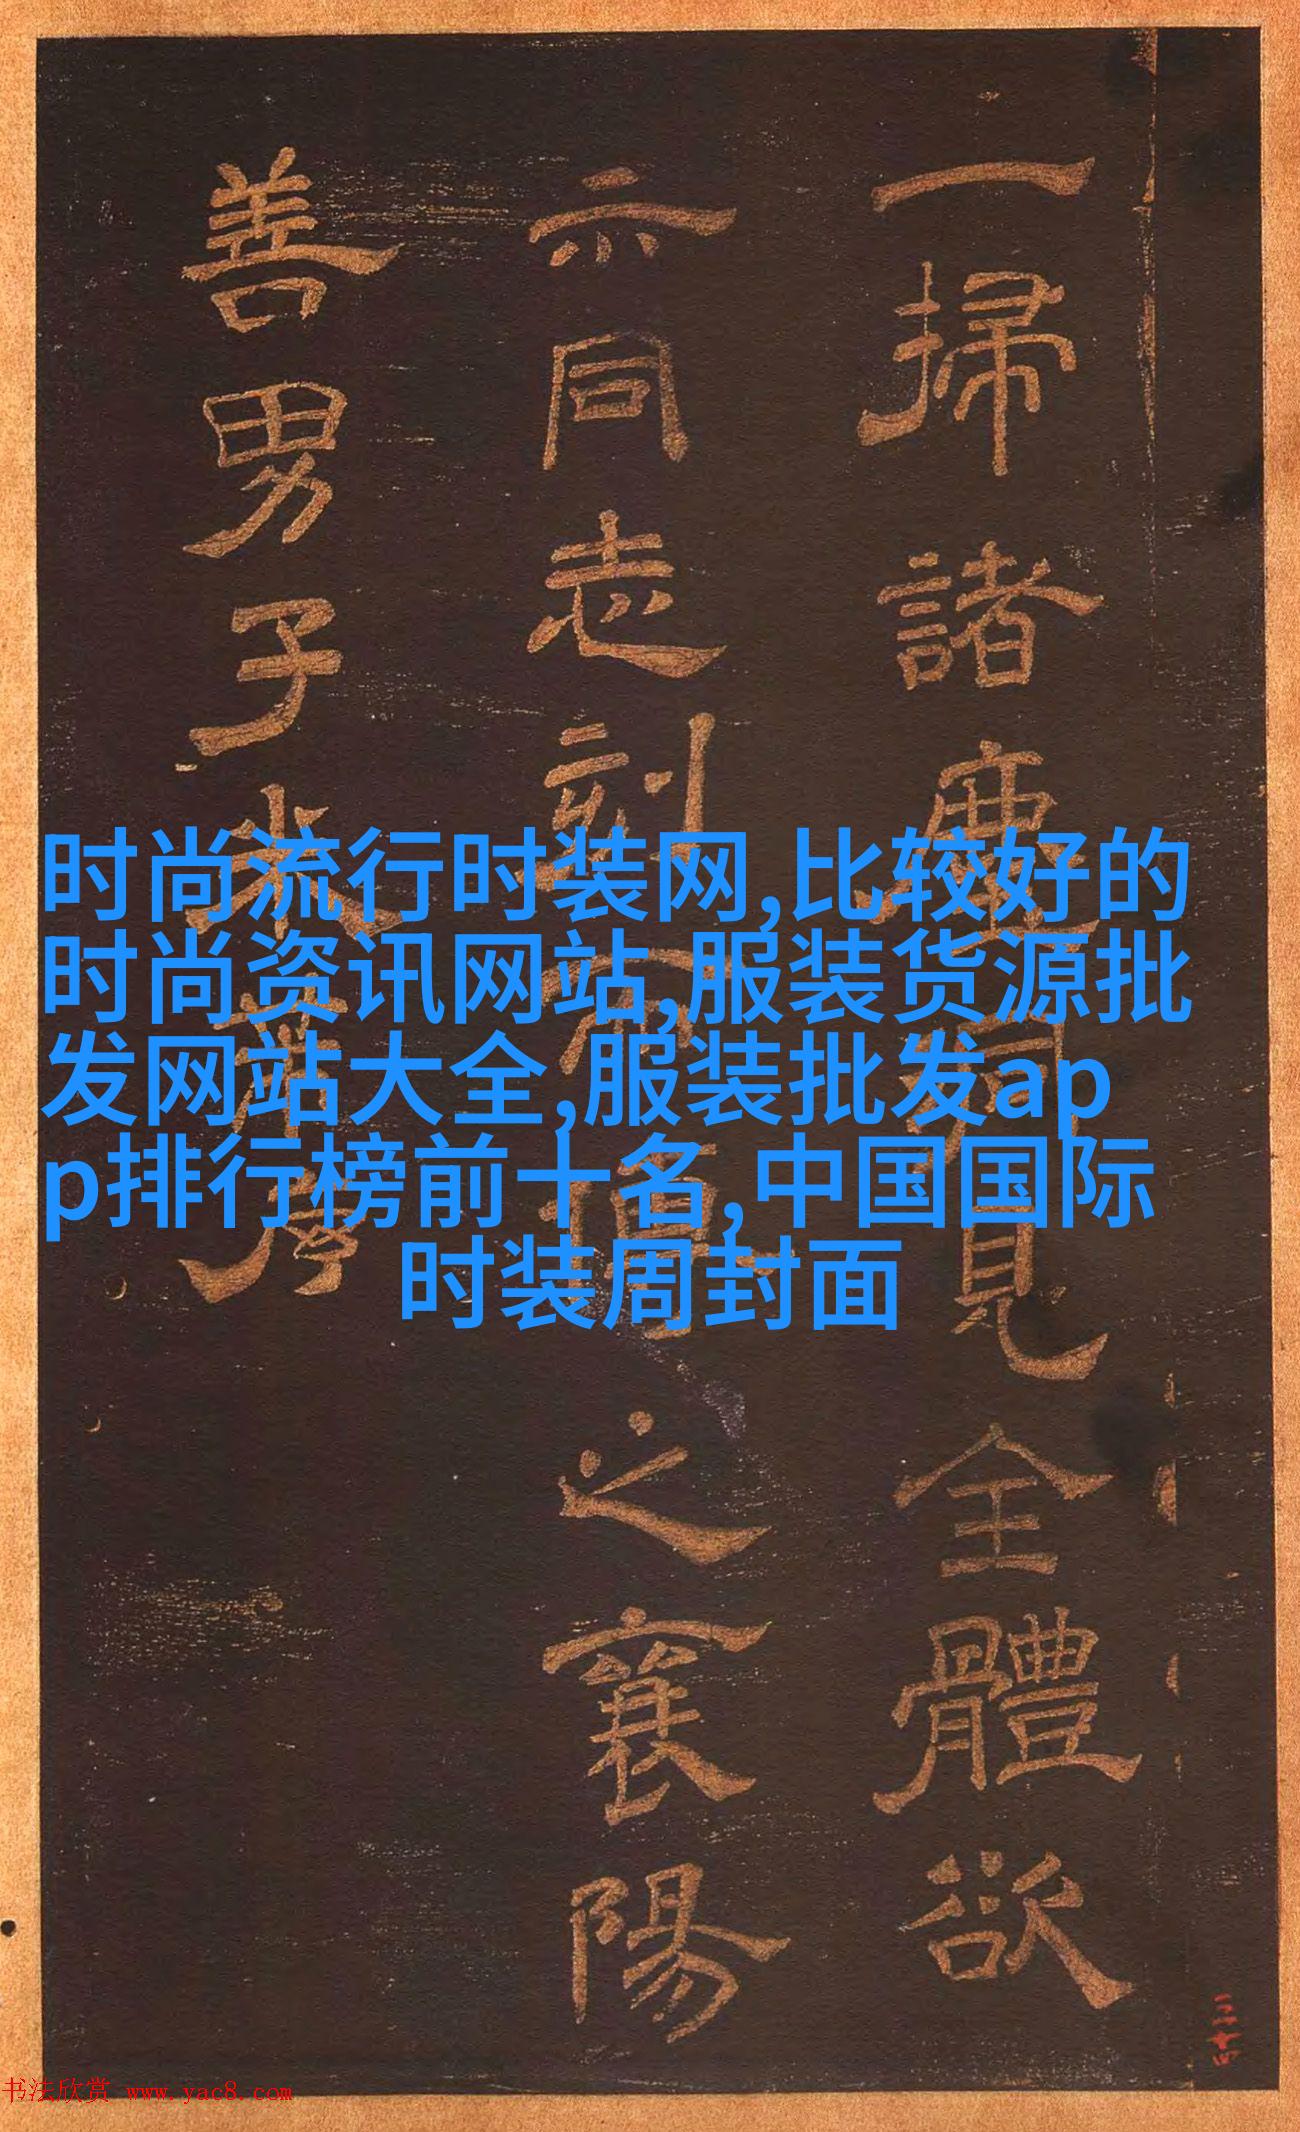 时尚流行时装网,比较好的
时尚资讯网站,服装货源批
发网站大全,服装批发ap
p排行榜前十名,中国国际
时装周封面
一掃諸塵見全體欲
示同志刻之襄陽
善男子米芾
三十四
书法欣赏 www.yac8.com